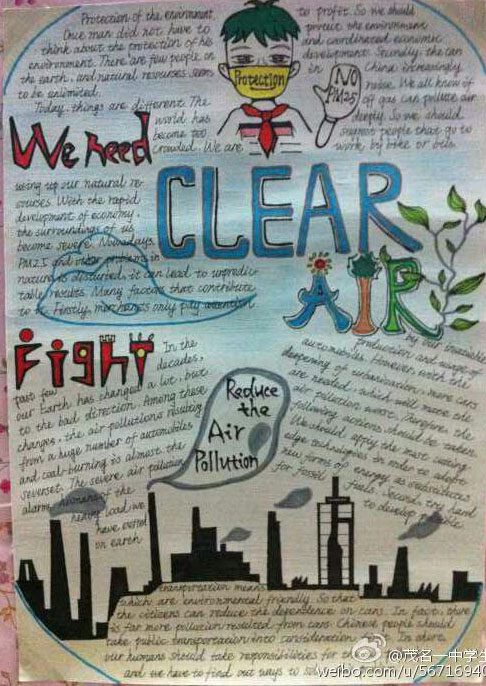 Protection of the environment
Once man did not have to
think about the protection of his
environment. There are few people on
the earth, and natural resources seem
to be unlimited.
Today, things are different. The
world has
become too
crowded. We are
using up our natural re-
sources. With the rapid
development of economy,
the surroundings of us
become severe. Nowadays,
PM2.5 and other problems in
nature is disturbed, it can lead to unpredic-
table results. Many factors that contribute
to it. Firstly, merchants only pay attention
to profit. So we should
protect the environment
and coordinated economic
development. Secondly, the car
in China increasingly
raise. We all know if
off gas can pollute air
deeply. So we should
suggest people that go to
work by bike or bus.
Protection
NO
PM2.5
We need
CLEAR
AIR
Fight
In the
past few decades,
our Earth has changed a lot, but
to the bad direction. Among these
changes, the air pollutions resulting
from a huge number of automobiles
and coal-burning is almost the
severest. The severe air pollution
alarms humans of the
heavy load we
have exerted
on earth
by our
production and usage of
automobiles. However, with the
deepening of urbanization, more cars
are needed, which will make the
air pollution worse. Therefore, the
following actions should be taken.
We should apply the most cutting
edge technologies in order to adopt
new forms of energy as substitutes
for fossil fuels. Second, try hard
to develop public
Reduce
the
Air
Pollution
transportation means
which are environmental friendly. So that
the citizens can reduce the dependence on cars. In fact, there
is far more pollution resulted from cars. Chinese people should
take public transportation into consideration. In short,
our humans should take responsibilities for the
and we have to find out ways to solve
@茂名一中学生
weibo.com/u/56716940